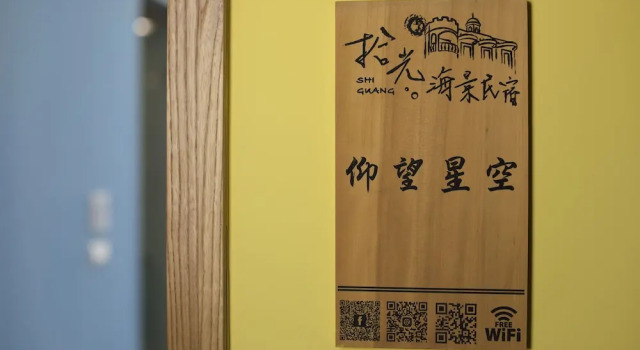 拾光。海景民宿
SHI
GUANG
仰望星空
FREE
WiFi